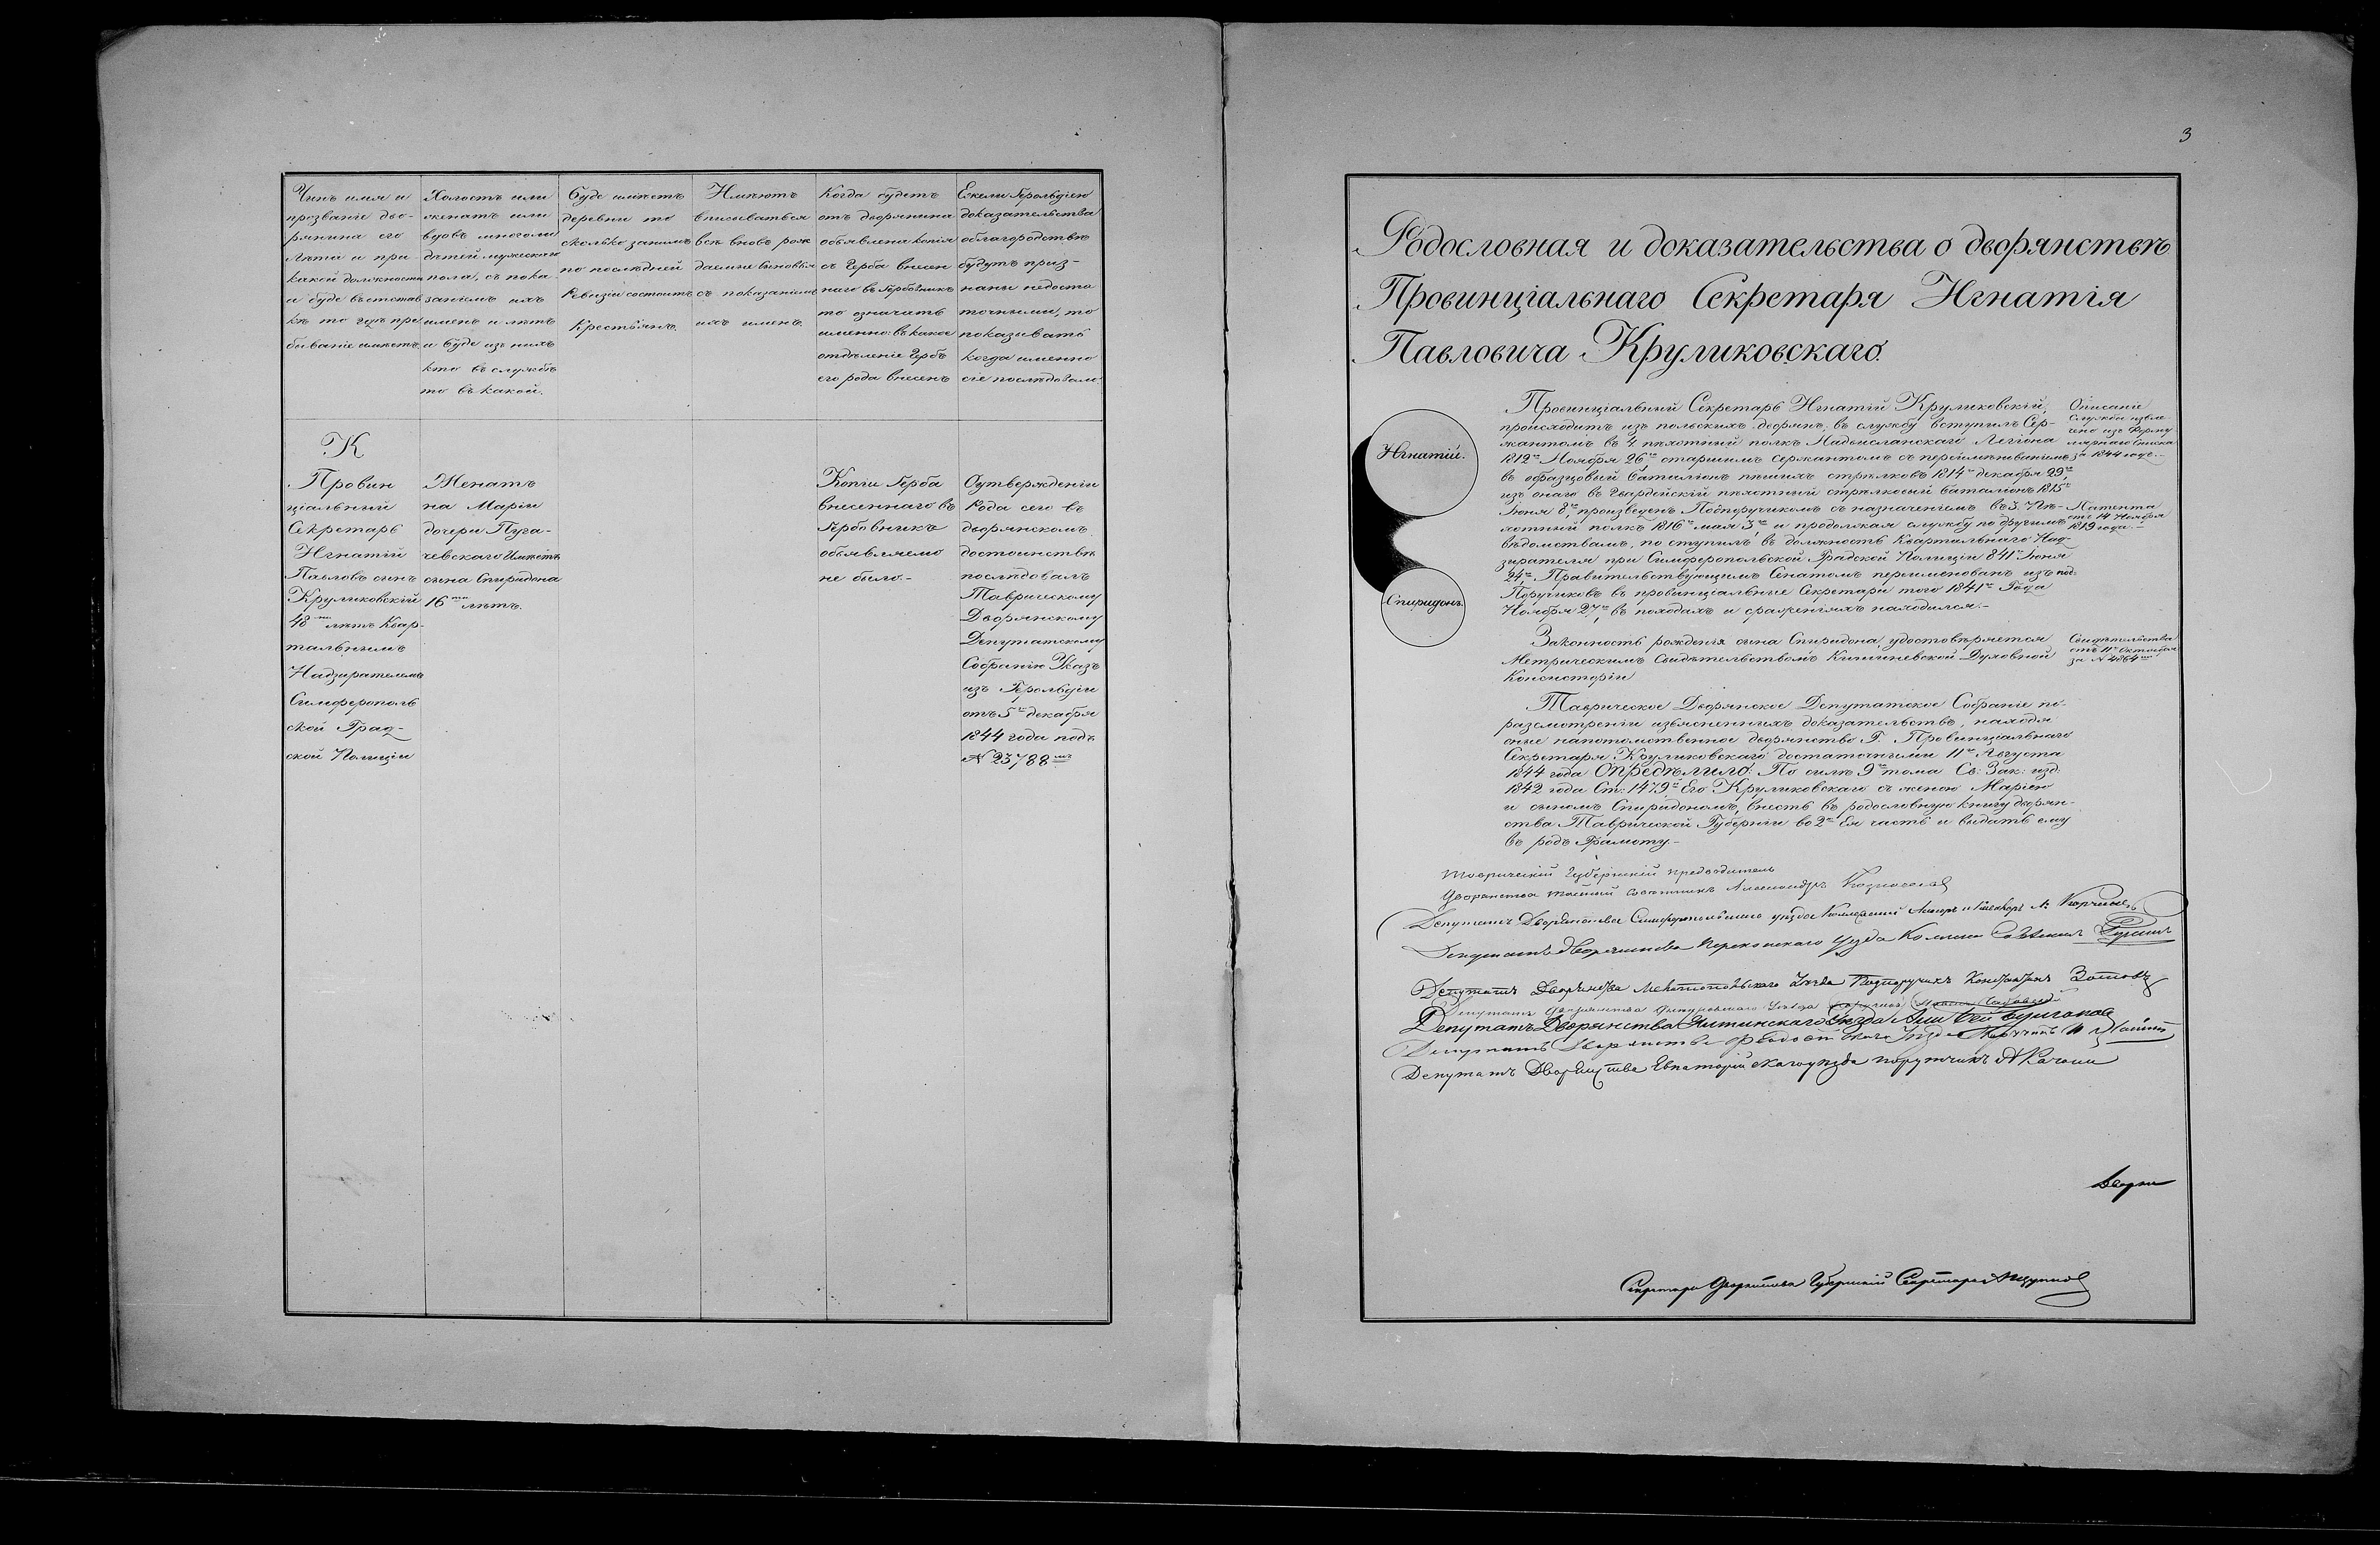 Чинъ имя и
прозваніе дво-
рянина его
Лѣта и при
какой должности
и буде въ отстав
кѣ то гдѣ пре
бываніе имѣетъ
Холостъ или
женатъ или
вдовъ многоми
дѣтей мужескаго
пола, съ пока
заніемъ ихъ
именъ и лѣтъ
и буде изъ нихъ
кто въ службѣ
то въ какой.
Буде имѣетъ
деревни то
сколько занимъ
по послѣдней
Ревизіи состоитъ
Крестьянъ.
Имѣютъ
вписываться
всѣ вновь рож
даемые сыновья
съ показаніемъ
ихъ именъ.
Когда будетъ
отъ дворянина
объявлена копія
съ Герба внесен
наго въ Гербовникъ
то означить
именно: въ какое
отдѣленіе Гербъ
его рода внесенъ
Ежели Герольдіею
доказательства
облагородствѣ
будутъ приз-
наны недоста
точными, то
показывать
когда именно
сіе послѣдовало.
К
Провин
ціальный
Секретарь
Игнатій
Павловъ сынъ
Круликовскій
48ми лѣтъ Квар-
тальнымъ
Надзирателемъ
Симферополь
ской Град-
ской Полиціи
Женатъ
на Маріи
дочери Пуга-
чевскаго Имѣетъ
сына Спиридона
16ти лѣтъ.
Копіи Герба
внесеннаго въ
Гербовникъ
объявляемо
не было.-
Оутвержденіи
Рода сего въ
дворянскомъ
достоинствѣ
послѣдовалъ
Таврическому
Дворянскому
Депутатскому
Собранію Указъ
изъ Герольдіи
отъ 5го декабря
1844 года подъ
№ 23788мъ
3
Родословная и доказательства о дворянствѣ
Провинціальнаго Секретаря Игнатія
Павловича Круликовскаго.
Игнатій.
Спиридонъ.
Провинціальный Секретарь Игнатій Круликовскій,
происходитъ изъ польскихъ дворянъ; въ службу вступилъ Сер-
жантомъ въ 4 пѣхотный полкъ Надвисланскаго Легіона
1812го Ноября 26го старшимъ сержантомъ съ переимѣнованіемъ
въ образцовый баталіонъ пѣшихъ стрѣлковъ 1814го декабря 29го,
изъ онаго въ Гвардейскій пѣхотный стрѣлковый баталіонъ 1815го
Іюня 8го, произведенъ Подпоручикомъ съ назначеніемъ въ 3. Пѣ-
хотный полкъ 1816го мая 3го и продолжая службу по другимъ
вѣдомствамъ, поступилъ въ должность Квартальнаго Над-
зирателя при Симферопольской Градской Полиціи 841го Іюня
24го, Правительствующимъ Сенатомъ переименованъ изъ под-
Поручиковъ въ провинціальные Секретари того 1841го Года
Ноября 27го, въ походахъ и сраженіяхъ находился.-
Описаніе
Службы извле
чено изъ Форму
лярнаго списка
за 1844 годъ.-
Патента
отъ 14 Ноября
1819 года.-
Законность рожденія сына Спиридона, удостовѣряется
Метрическимъ Свидѣтельствомъ Кишиневской Духовной
Консисторіи
Свидѣтельства
отъ 11го Октября
за № 4864мъ
Таврическое Дворянское Депутатское Собраніе по-
разсмотреніи изъясненныхъ доказательствъ, находя
оные напотомственное дворянство Г. Провинціальнаго
Секретаря Круликовскаго достаточными 11го Августа
1844 года Опредѣлило: По силѣ 9го тома Св: Зак: изд:
1842 года Ст: 1479й Его Круликовскаго съ женою Маріею
и сыномъ Спиридономъ, внесть въ родословную книгу дворян-
ства Таврической Губерніи во 2ю Ея часть и выдать ему
въ родъ Грамоту.-
Таврическій Губернскій предводитель
дворянства тайный Совѣтникъ Александръ Казначеевъ
Депутатъ Дворянства Симферопольскаго уѣзда
Депутатъ Дворянства Перекопскаго уѣзда
Депутатъ Дворянства Мелитопольскаго Уѣзда Подпоручикъ Константинъ Зотовъ
Депутатъ Дворянства Днепровскаго Уѣзда
Депутатъ Дворянства Ялтинскаго Уѣзда Али бей Булгаковъ
Депутатъ Дворянства Феодосійскаго Уѣзда
Депутатъ Дворянства Евпаторійскаго уѣзда поручикъ А Качони
Секретарь Дворянства Губернскій Секретарь